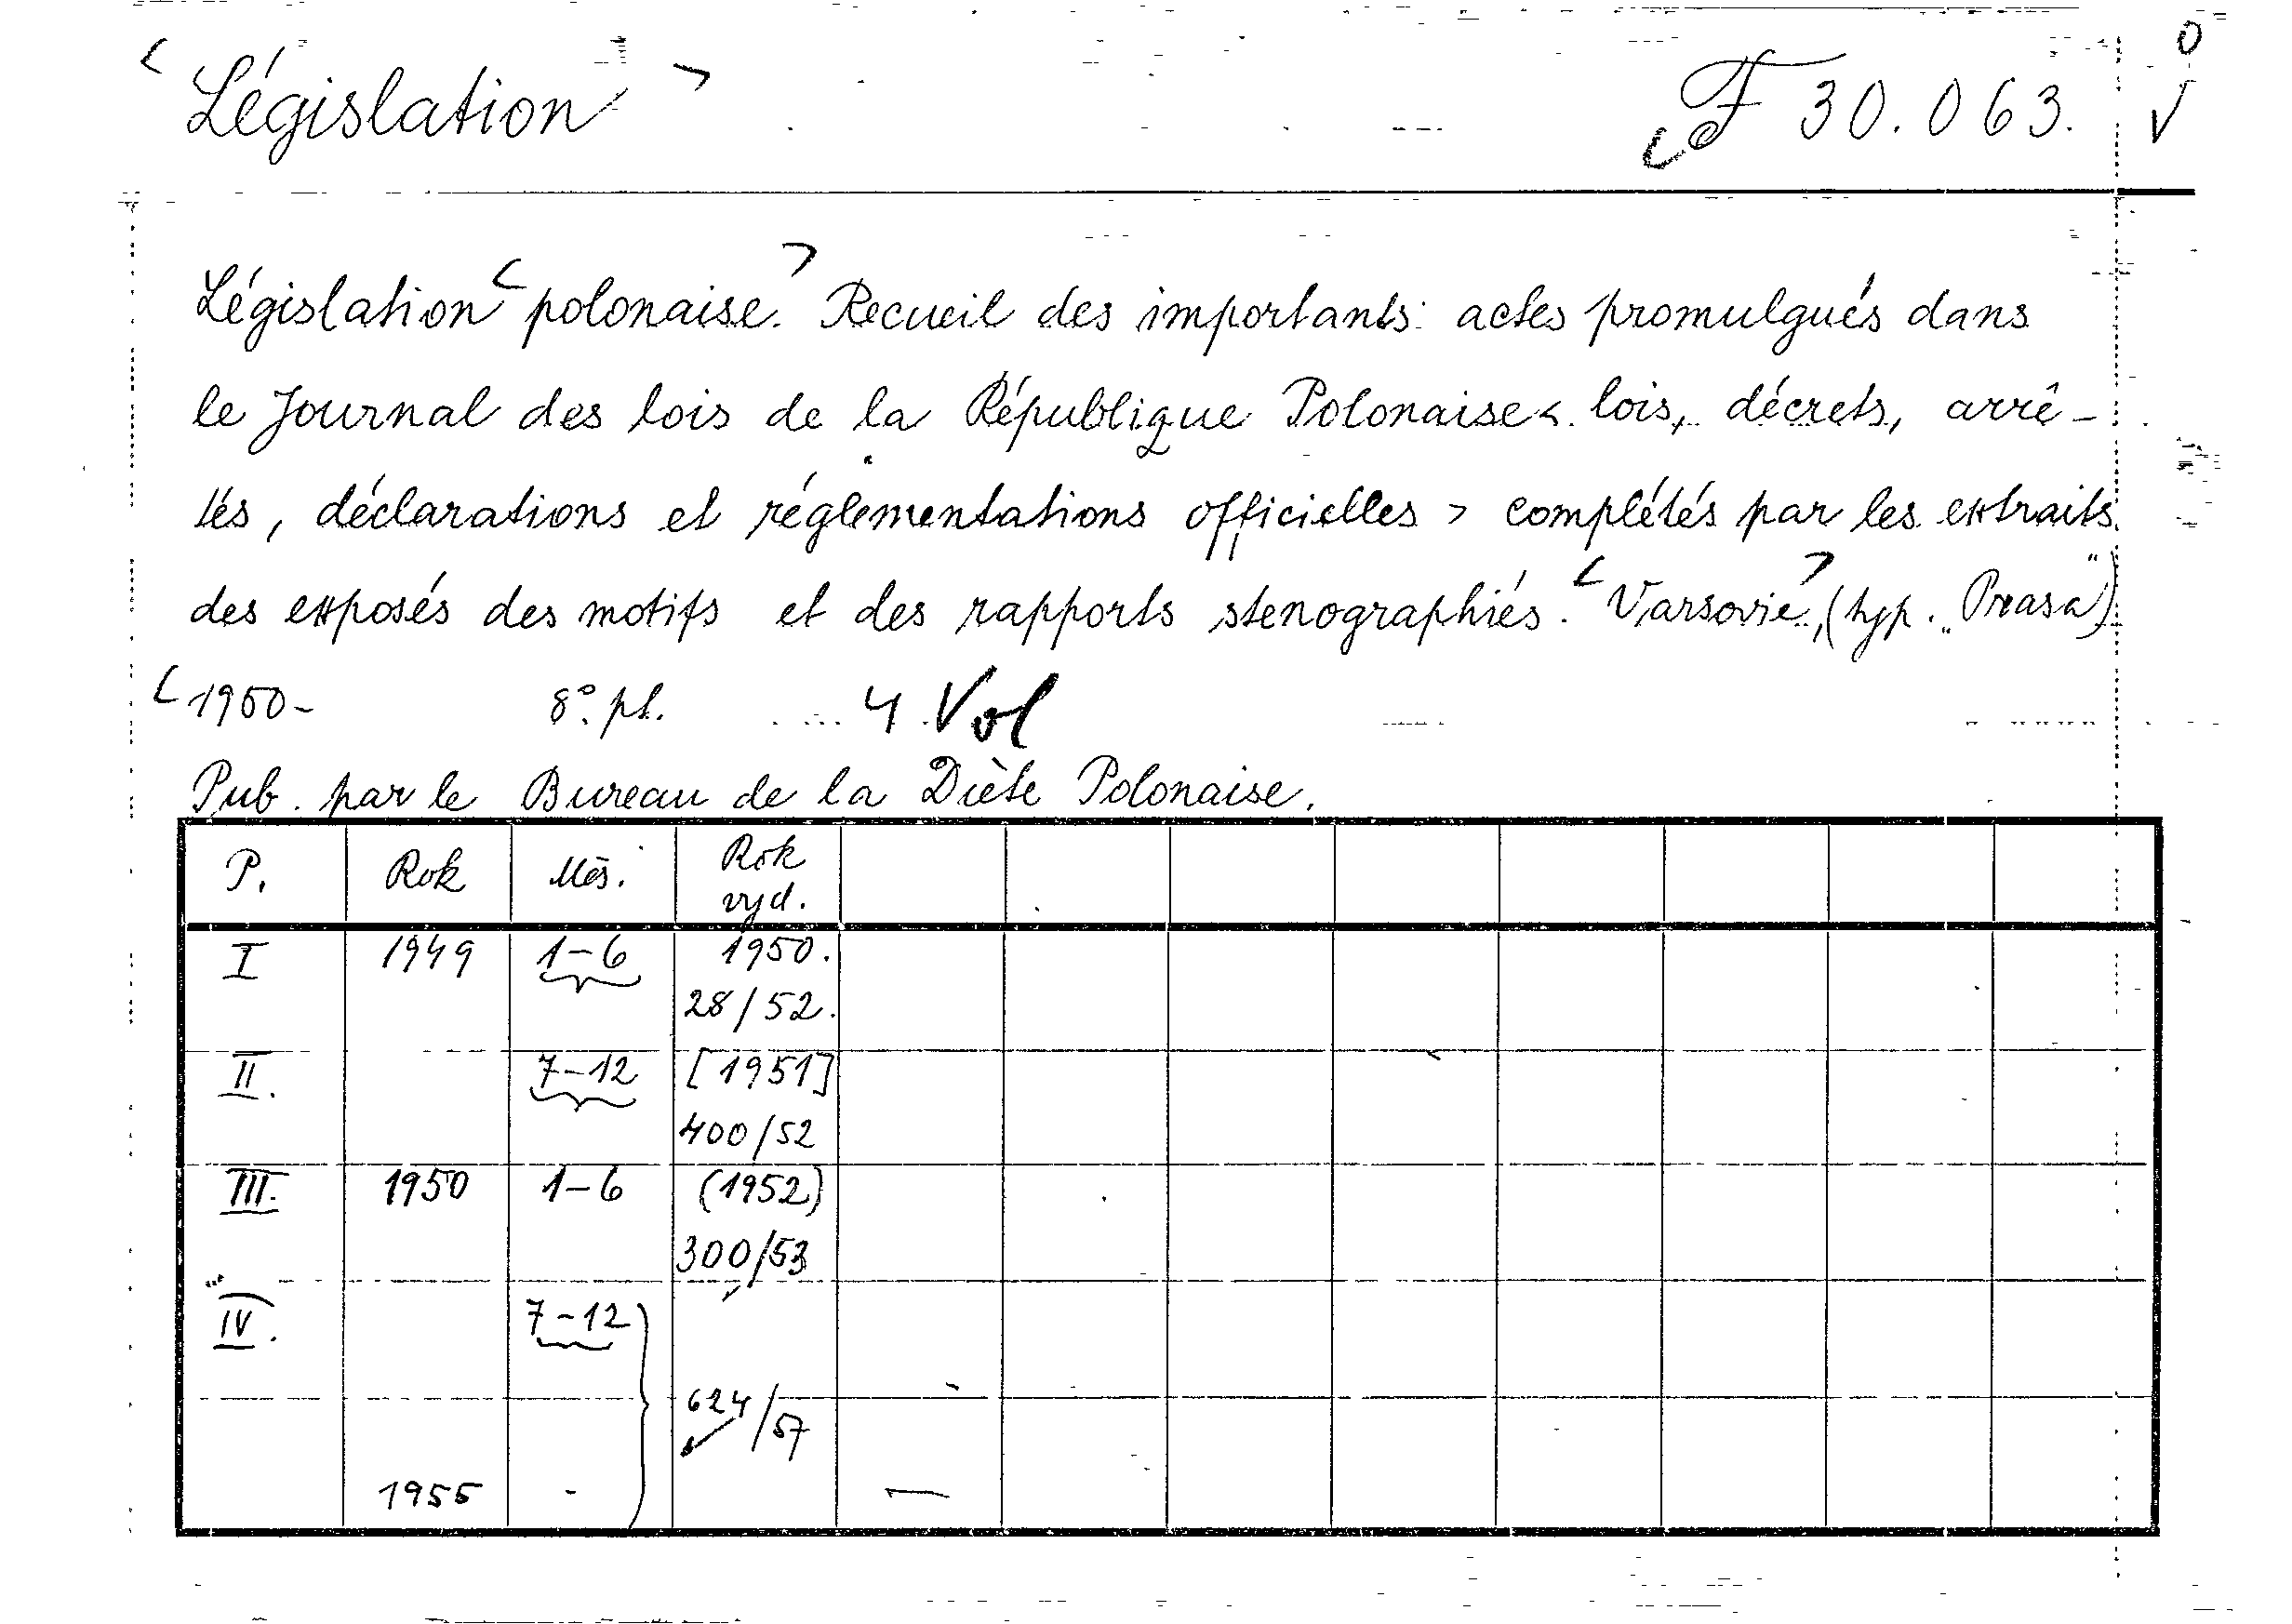 < Législation >
F 30.063.
Législation < polonaise. > Recueil des importants: actes promulgués dans
le Journal des lois de la République Polonaise < lois, décrets, arrê-
tés, déclarations et réglementations officielles > complétés par les extraits
des exposés des motifs et des rapports stenographiés. < Varsovie >, (typ. „Prasa“)
< 1950- 8° pl. 4 Vol
Pub. par le Bureau de la Diète Polonaise.
P. Rok Měs. Rok
vyd.
I 1949 1-6 1950.
28/52.
II. 7-12 [1951]
400/52
III. 1950 1-6 (1952)
300/53
IV. 7-12
624/57
1955 - —